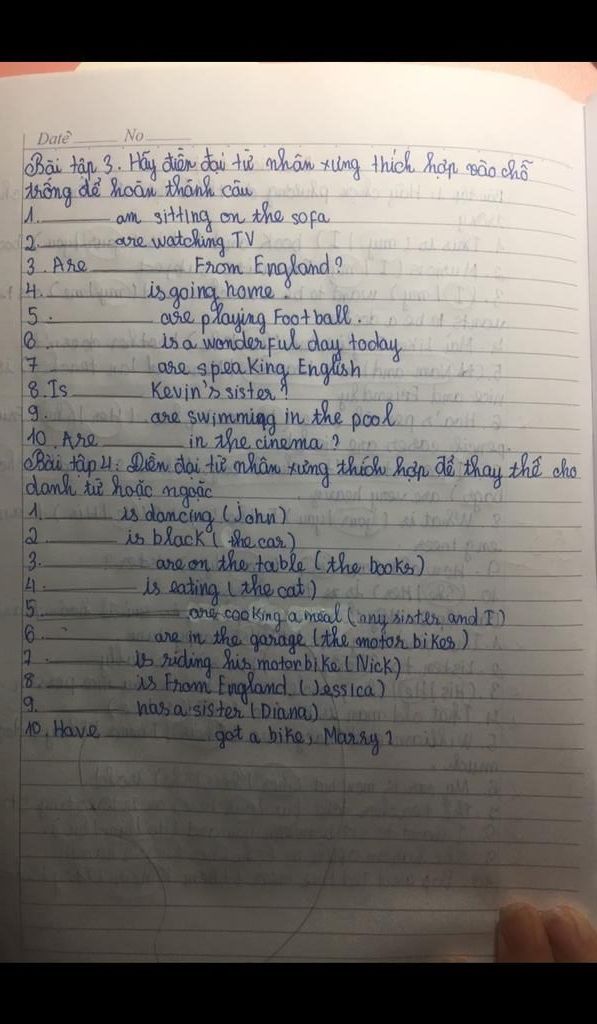 Date No
Bài tập 3. Hãy điền đại từ nhân xưng thích hợp vào chỗ
trống để hoàn thành câu
1. ______ am sitting on the sofa
2. ______ are watching TV
3. Are ______ From England?
4. ______ is going home.
5. ______ are playing Football.
6 ______ is a wonderful day today
7 ______ are speaking English
8. Is ______ Kevin's sister?
9. ______ are swimming in the pool
10. Are ______ in the cinema?
Bài tập 4: Điền đại từ nhân xưng thích hợp để thay thế cho
danh từ hoặc ngoặc
1. ______ is dancing (John)
2 ______ is black (the car)
3. ______ are on the table (the books)
4. ______ is eating (the cat)
5 ______ are cooking a meal (any sister and I)
6. ______ are in the garage (the motor bikes)
7. ______ is riding his motorbike (Nick)
8. ______ is From England (Jessica)
9. ______ has a sister (Diana)
10. Have ______ got a bike, Marry?